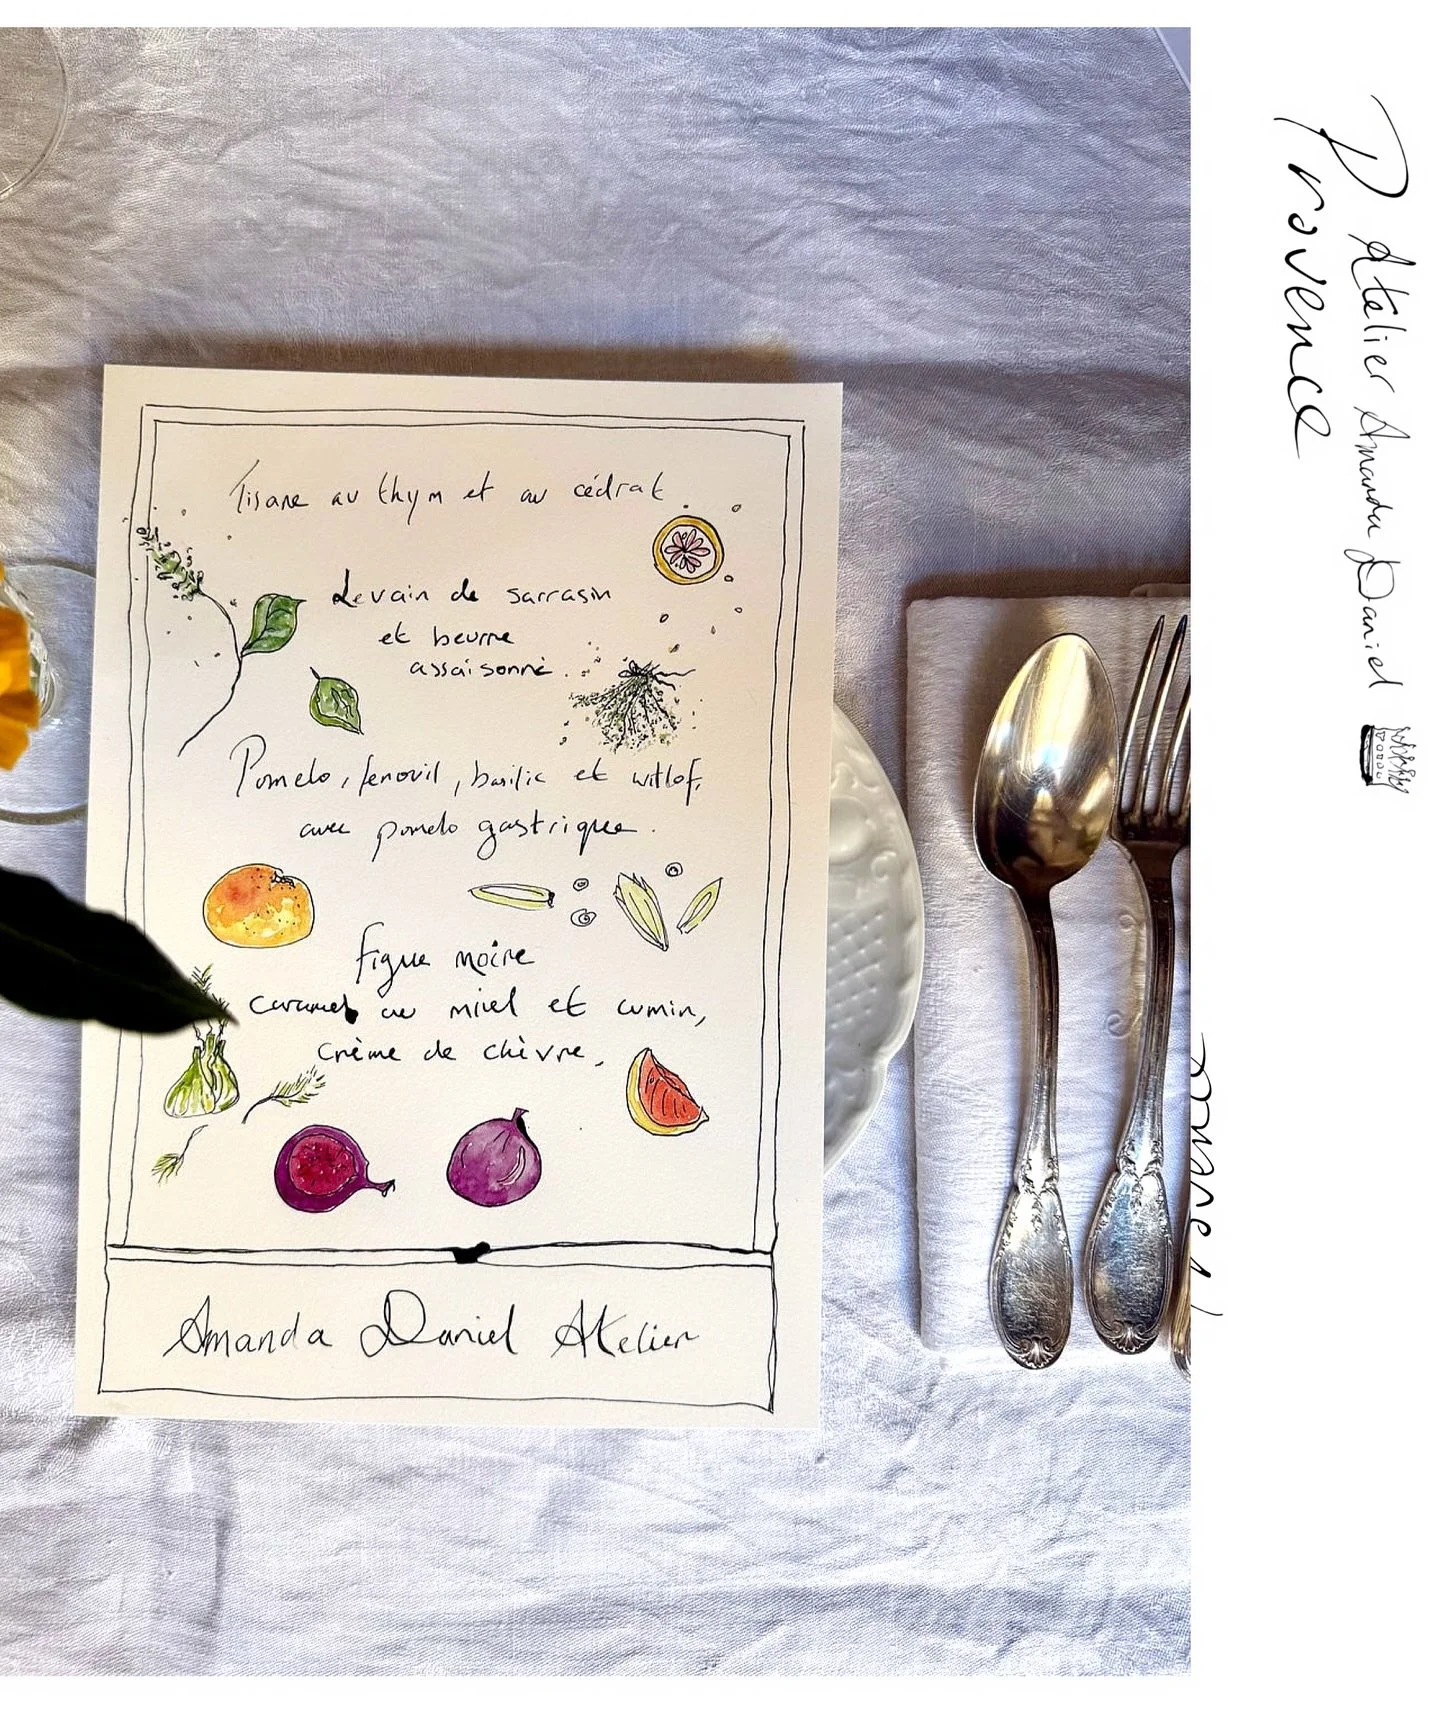 Tisane au thym et au cédrat
Levain de sarrasin
et beurre
assaisonné.
Pomelo, fenouil, basilic et witlof,
avec pomelo gastrique.
figue noire
caramel au miel et cumin,
crème de chèvre,
Amanda Daniel Atelier
Provence
Atelier Amanda Daniel